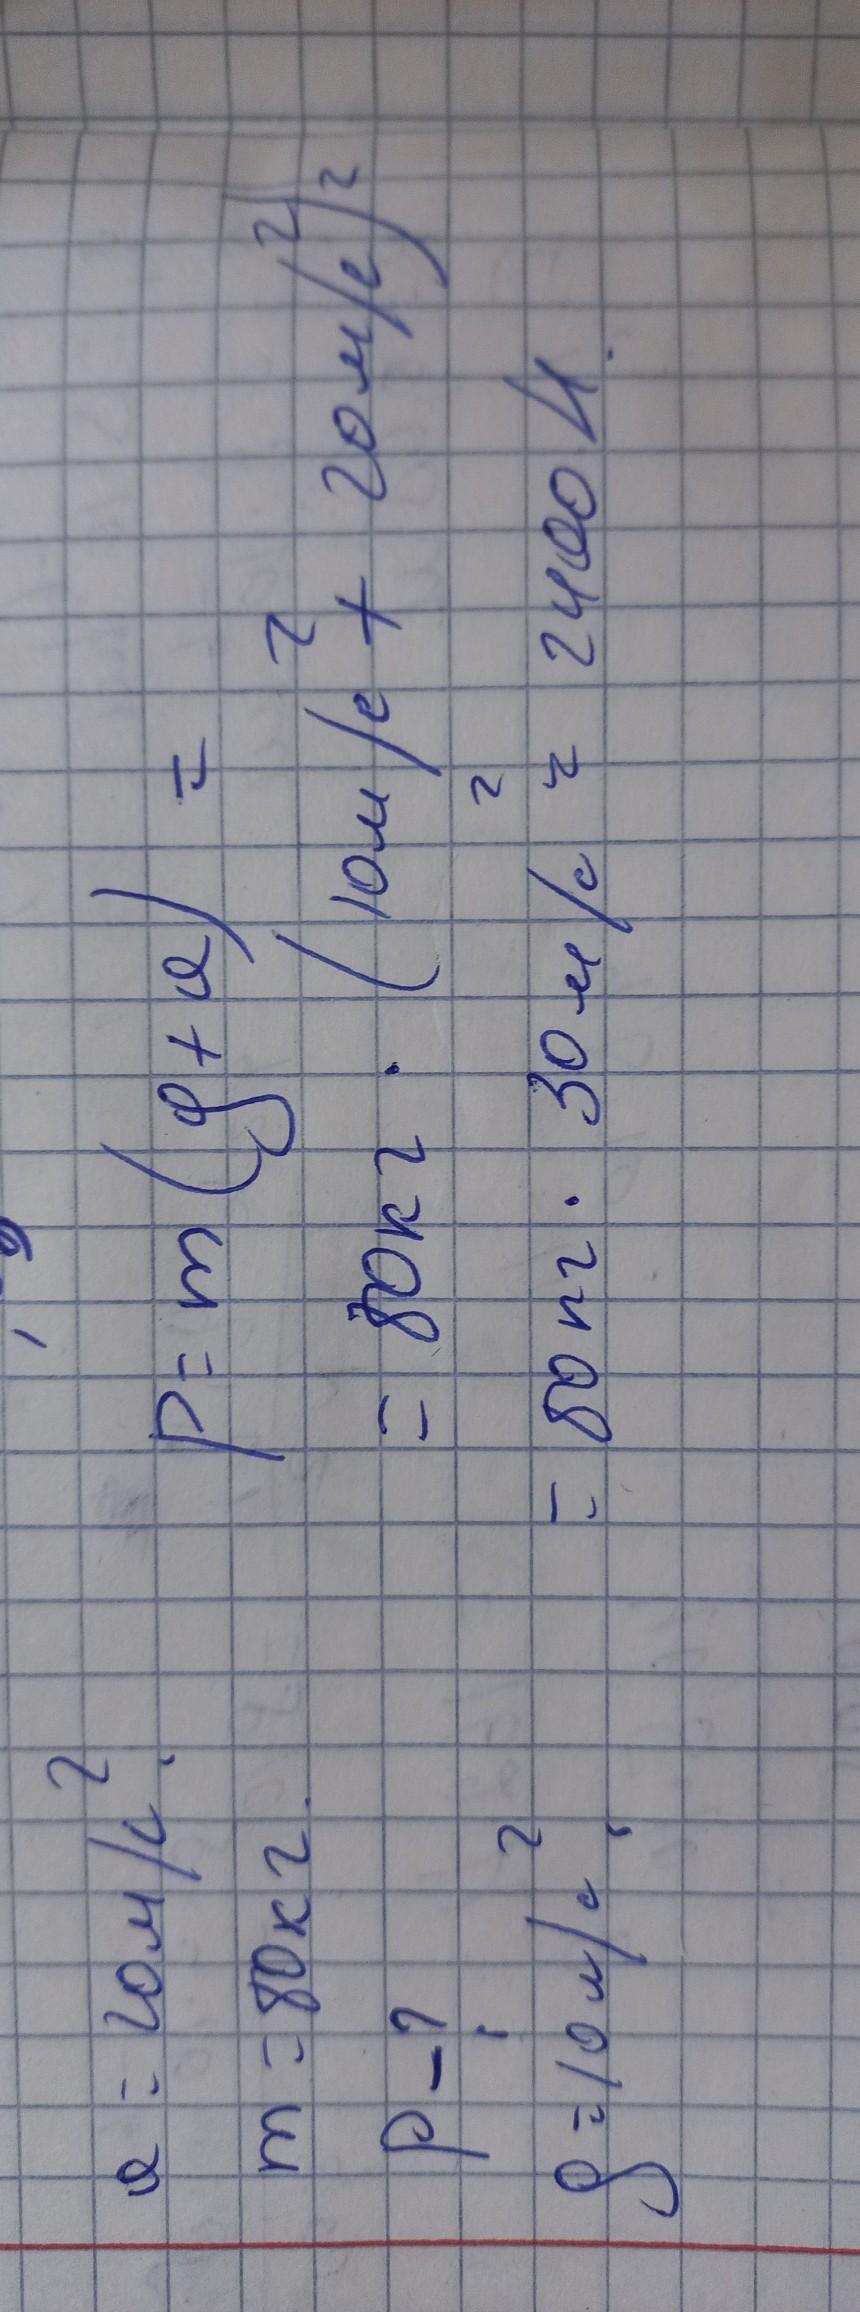 a = 20м/с².
m = 80кг.
P - ?
g = 10м/с²,
P = m(g+a) =
= 80кг · (10м/с² + 20м/с²) =
= 80кг · 30м/с² = 2400Н.